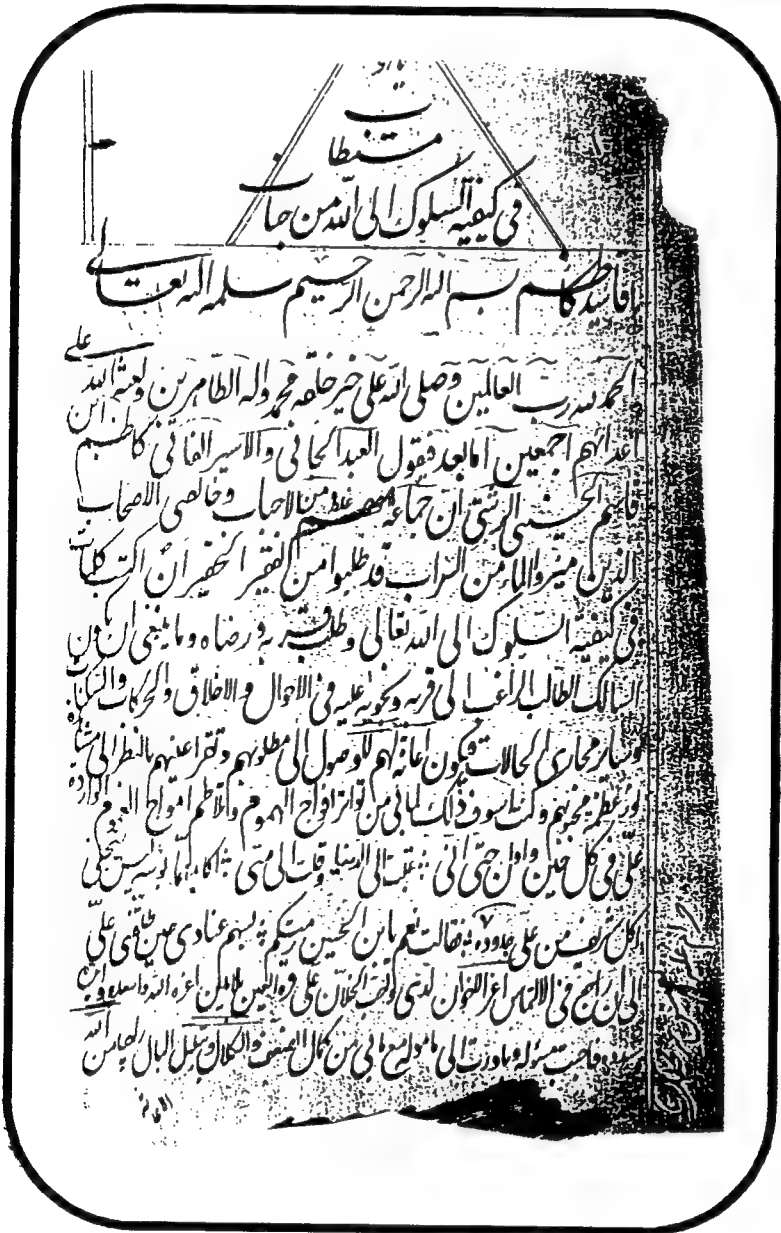 مستطاب
في كيفية السلوك الى الله من جناب
اقا سيد كاظم بسم الله الرحمن الرحيم سلمه الله تعالى
الحمد لله رب العالمين وصلى الله على خير خلقه محمد واله الطاهرين ولعنة الله على
اعدائهم اجمعين اما بعد فيقول العبد الجاني والاسير الفاني كاظم ابن
قاسم الحسيني الرشتي ان جماعة من الاحباب وخالصي الاصحاب
الذين ميزوا الماء من السراب قد طلبوا من الفقير الحقير ان اكتب كلمات
في كيفية السلوك الى الله تعالى وطلب قربه ورضاه وما ينبغي ان يكون
السالك الطالب الراغب الى قربه ونحوبه عليه في الاحوال والاخلاق والحركات والسكنات
وساير مجاري الحالات فيكون اعانة لهم للوصول الى مطلوبهم وتقر اعينهم بالنظر الى مشاهدة
نور عظمة محبوبهم وكنت اسوف ذلك لما بي من تواتر افواج الهموم وتلاطم امواج الغموم الواردة
علي في كل حين واوان حتى اني عتبت الى الدنيا وقلت الى متى اكابد
اكل شريف من علي جدوده فقالت نعم يا ابن الحسين رميتكم بسهم عنادي حين طلقني علي
الى ان في الالتماس اعز الاخوان لدي والخلان علي قرة العين اعزه الله واسعده
فاجبت مسئوله وبادرت الى ماموله مع ما بي من كمال الضعف والكلال وتبلبل البال راجيا من الله